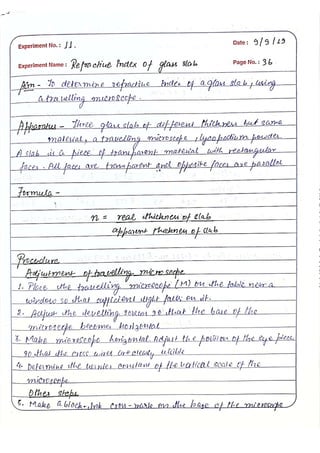 Experiment No. : 11.
Date : 9/9/23
Experiment Name : Refractive Index of glass slab
Page No. : 36
Aim - To determine refractive index of a glass slab, using
a travelling microscope.
Apparatus - Three glass slab of different thickness but same
material, a travelling microscope, lycopodium powder
A slab is a piece of transparent material with rectangular
faces. All faces are transparent and opposite faces are parallel
Formula -
n = real thickness of slab
apparent thickness of slab
Procedure
Adjustment of travelling microscope
1. Place the travelling microscope (M) on the table near a
window so that sufficient light faces on it.
2. Adjust the levelling screw so that the base of the
microscope become horizontal
3. Make microscope horizontal. Adjust the position of the eye piece
so that the cross wires are clearly visible
4. Determine the vernier constant of the vertical scale of the
microscope
Other steps
5. Make a black-ink cross-mark on the base of the microscope